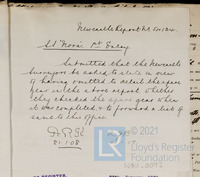 Newcastle Report No 50124
St Nooni 1st Entry
Submitted that the Newcastle
Surveyors be asked to state in view
of having omitted to detail the spare
gear in the above report whether
they checked the spare gear when it
was completed & to forward a list of
same to this office
21.1.08
© 2021
Lloyd's Register
Foundation